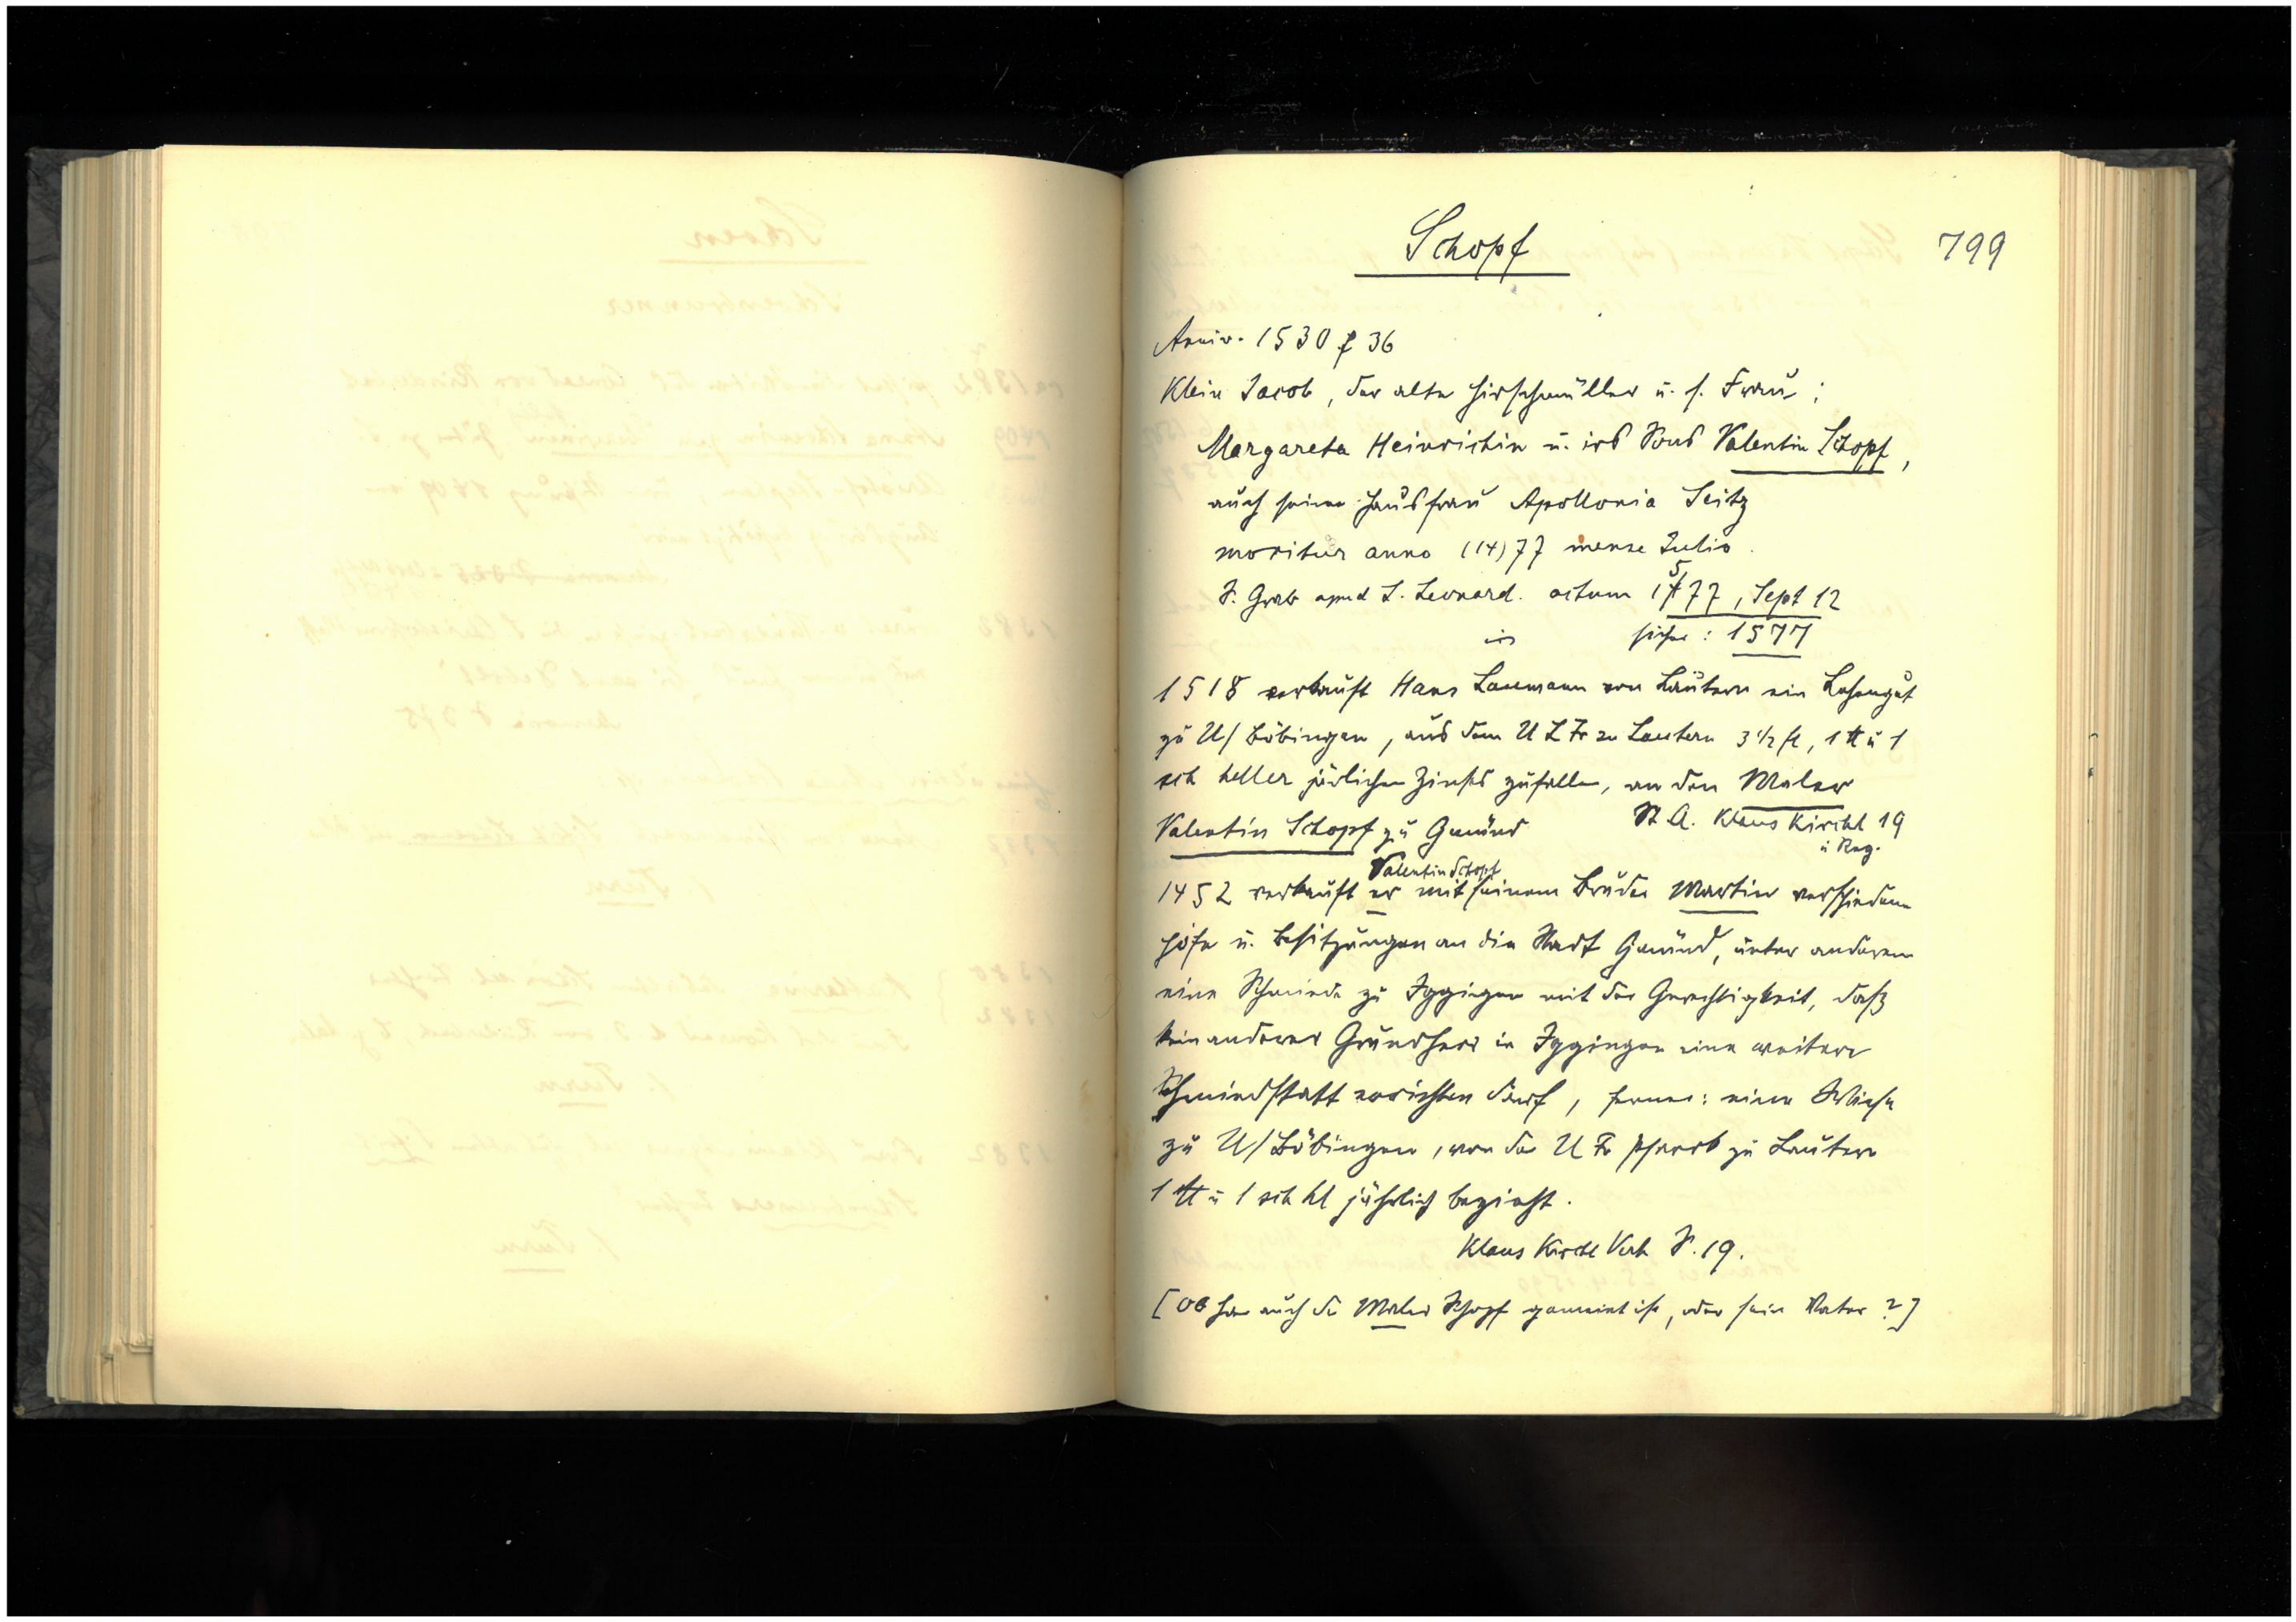 Schopf
799
Anniv. 1530 f 36
Klein Jacob, der alte Hirschmüller u. s. Frau;
Margareta Heinrichin u. irs Sons Valentin Schopf,
auch seine Hausfrau Apollonia Seitz
moritur anno (14)77 mense Julio.
S. Grab apud S. Leonard. actum 1577, Sept 12
sicher: 1577
1518 verkauft Hans Laumann von Lautern ein Lehengut
zu U/Böbingen, aus dem U L Fr zu Lautern 3 1/2 fl, 1 ℔ u 1
sch heller järlichen Zinses zufallen, an den Maler
Valentin Schopf zu Gmünd
St. A. Klaus Kirchl 19
u Reg.
Valentin Schopf
1452 verkauft er mit seinem Bruder Martin verschiedene
Höfe u. Besitzungen an die Stadt Gmünd, unter anderem
eine Schmiede zu Iggingen mit der Gerechtigkeit, daß
kein anderer Grundherr in Iggingen eine weitere
Schmiedstatt errichten darf, ferner: eine Wiese
zu U/Böbingen, von der U Fr Pfarrk zu Lautern
1 ℔ u 1 sch hl jährlich bezieht.
Klaus Kirchl Verh S. 19.
[Ob hier auch der Maler Schopf gemeint ist, oder sein Vater?]